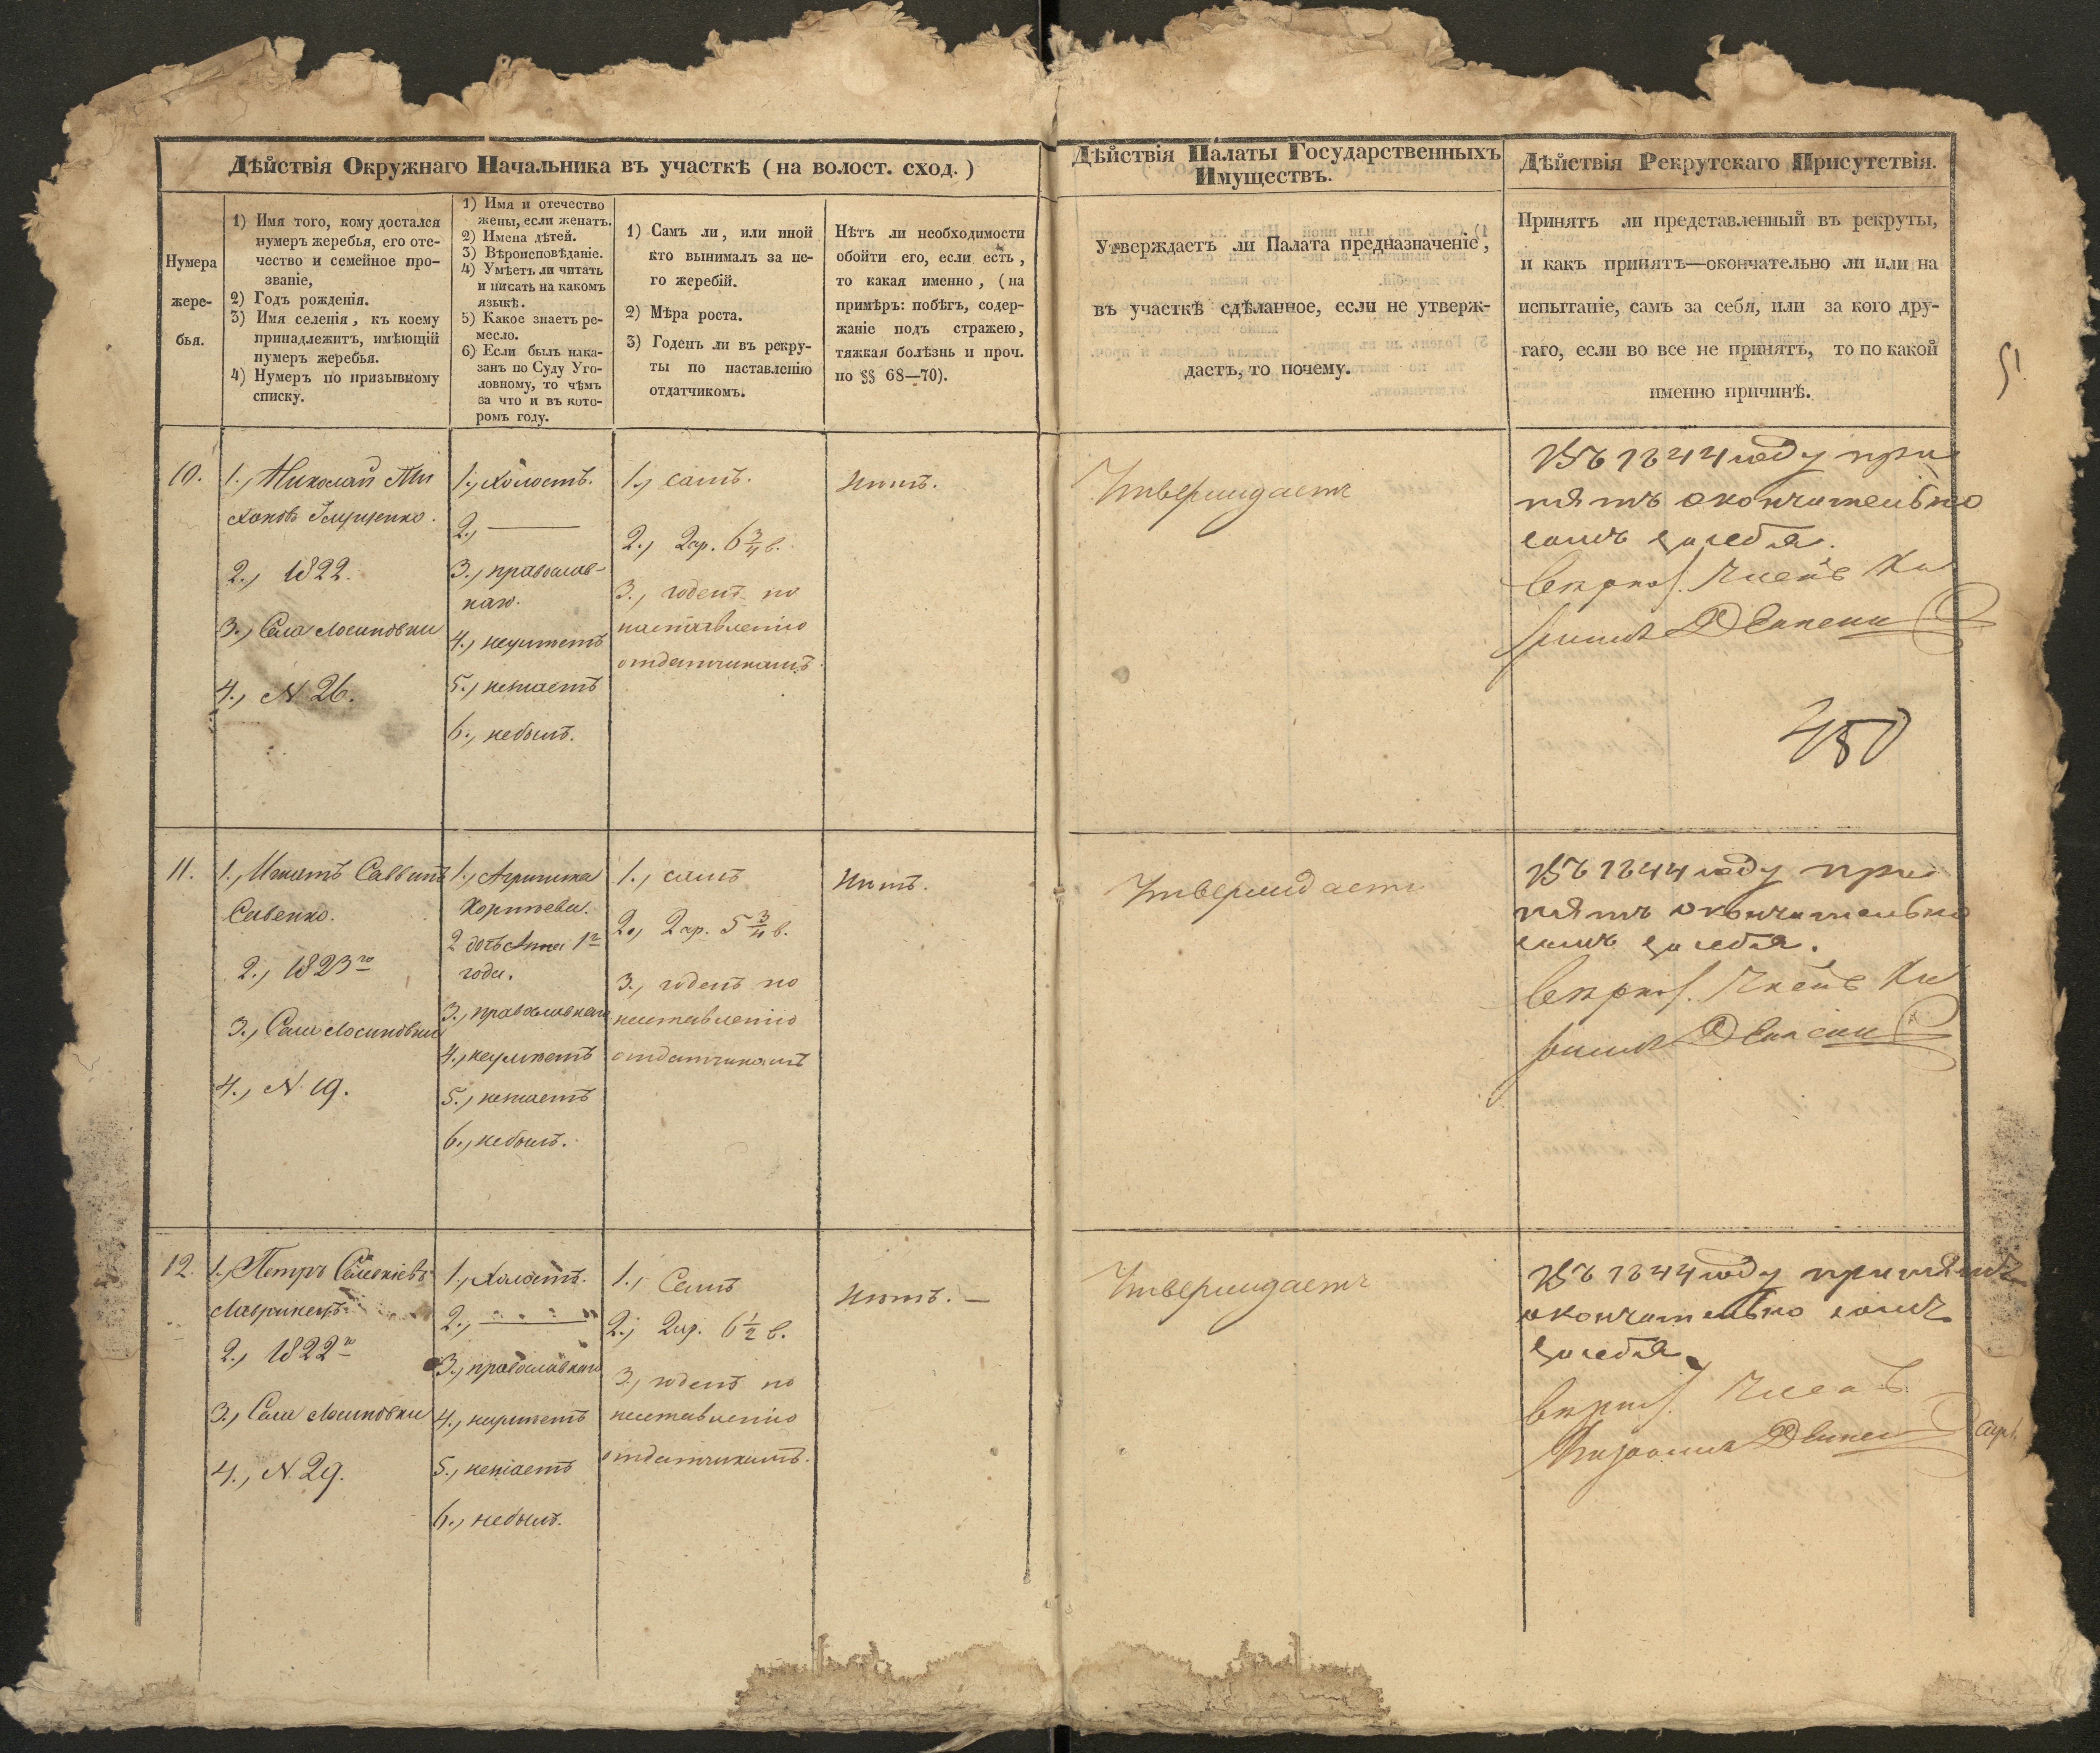 Дѣйствія Окружнаго Начальника въ участкѣ (на волост. сход.)
Нумера
жере-
бья.
1) Имя того, кому достался
нумеръ жеребья, его оте-
чество и семейное про-
званіе,
2) Годъ рожденія.
3) Имя селенія, къ коему
принадлежитъ, имѣющій
нумеръ жеребья.
4) Нумеръ по призывному
списку.
1) Имя и отечество
жены, если женатъ.
2) Имена дѣтей.
3) Вѣроисповѣданіе.
4) Умѣетъ ли читать
и писать на какомъ
языкѣ.
5) Какое знаетъ ре-
месло.
6) Если былъ нака-
занъ по Суду Уго-
ловному, то чѣмъ
за что и въ кото-
ромъ году.
1) Самъ ли, или иной
кто вынималъ за не-
го жеребій.
2) Мѣра роста.
3) Годенъ ли въ рекру-
ты по наставленію
отдатчикомъ.
Нѣтъ ли необходимости
обойти его, если есть,
то какая именно, (на
примѣръ: побѣгъ, содер-
жаніе подъ стражею,
тяжкая болѣзнь и проч.
по §§ 68—70).
Дѣйствія Палаты Государственныхъ
Имуществъ.
Утверждаетъ ли Палата предназначеніе,
въ участкѣ сдѣланное, если не утверж-
даетъ, то почему.
Дѣйствія Рекрутскаго Присутствія.
Принятъ ли представленный въ рекруты,
и какъ принятъ—окончательно ли или на
испытаніе, самъ за себя, или за кого дру-
гаго, если во все не принятъ, то по какой
именно причинѣ.
51.
10.
1., Николай Ти
хоновъ Ищенко.
2., 1822.
3., Села Лосиновки
4., N 26.
1., Холостъ.
2., —
3., православ-
наго.
4., неумѣетъ
5., незнаетъ
6., небылъ.
1., самъ.
2., 2 ар. 6 3/4 в.
3., годенъ по
наставленію
отдатчикамъ.
Нѣтъ.
Утверждаетъ
Въ 1844 году при
нятъ окончательно
самъ за себя.
450
11.
1., Игнатъ Саввинъ
Савенко.
2., 1823го
3., Села Лосиновки
4., N. 19.
1., Агрипина
Корнѣева.
2 дочь Анна 1г
года.
3., православнаго
4., неумѣетъ
5., незнаетъ
6., небылъ.
1., самъ
2., 2 ар. 5 3/4 в.
3., годенъ по
наставленію
отдатчикамъ
Нѣтъ.
Утверждаетъ
Въ 1844 году при
нятъ окончательно
самъ за себя.
12.
1., Петръ
2., 1822го
3., Села Лосиновки
4., N. 29.
1., Холостъ.
2., —
3., православнаго
4., неумѣетъ
5., незнаетъ
6., небылъ.
1., Самъ
2., 2 ар. 6 1/2 в.
3., годенъ по
наставленію
отдатчикамъ.
Нѣтъ. —
Утверждаетъ
Въ 1844 году принятъ
окончательно самъ
за себя.